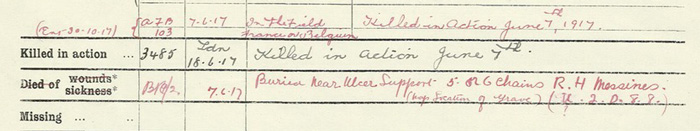 (Ent 30-10-17) A.F.B 103 7-6-17 In the Field France or Belgium Killed in Action June 7th, 1917.
Killed in action ... 3485 Ldn 18-6-17 Killed in action June 7th.
Died of wounds* sickness* 7-6-17 Buried Near Ulcer Support 5 or 6 Chains R.H Messines.
(Map Location of Grave) 2. D. 8.8.)
Missing ... ...